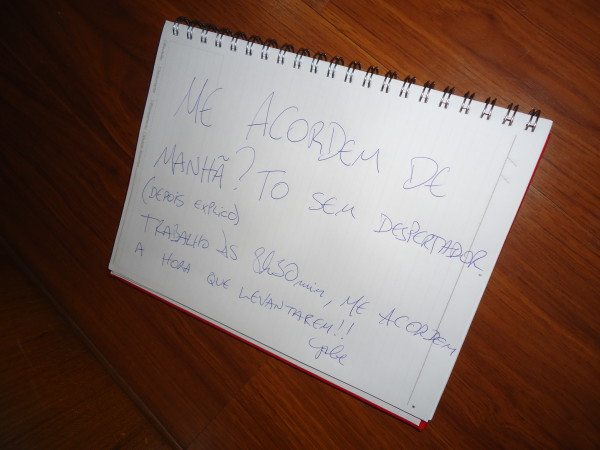 ME ACORDEM DE
MANHÃ? TO SEM DESPERTADOR.
(DEPOIS EXPLICO)
TRABALHO ÀS 8h30min, ME ACORDEM
A HORA QUE LEVANTAREM!!